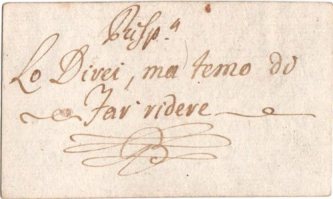 Risp.a
Lo Direi, ma temo di
far ridere